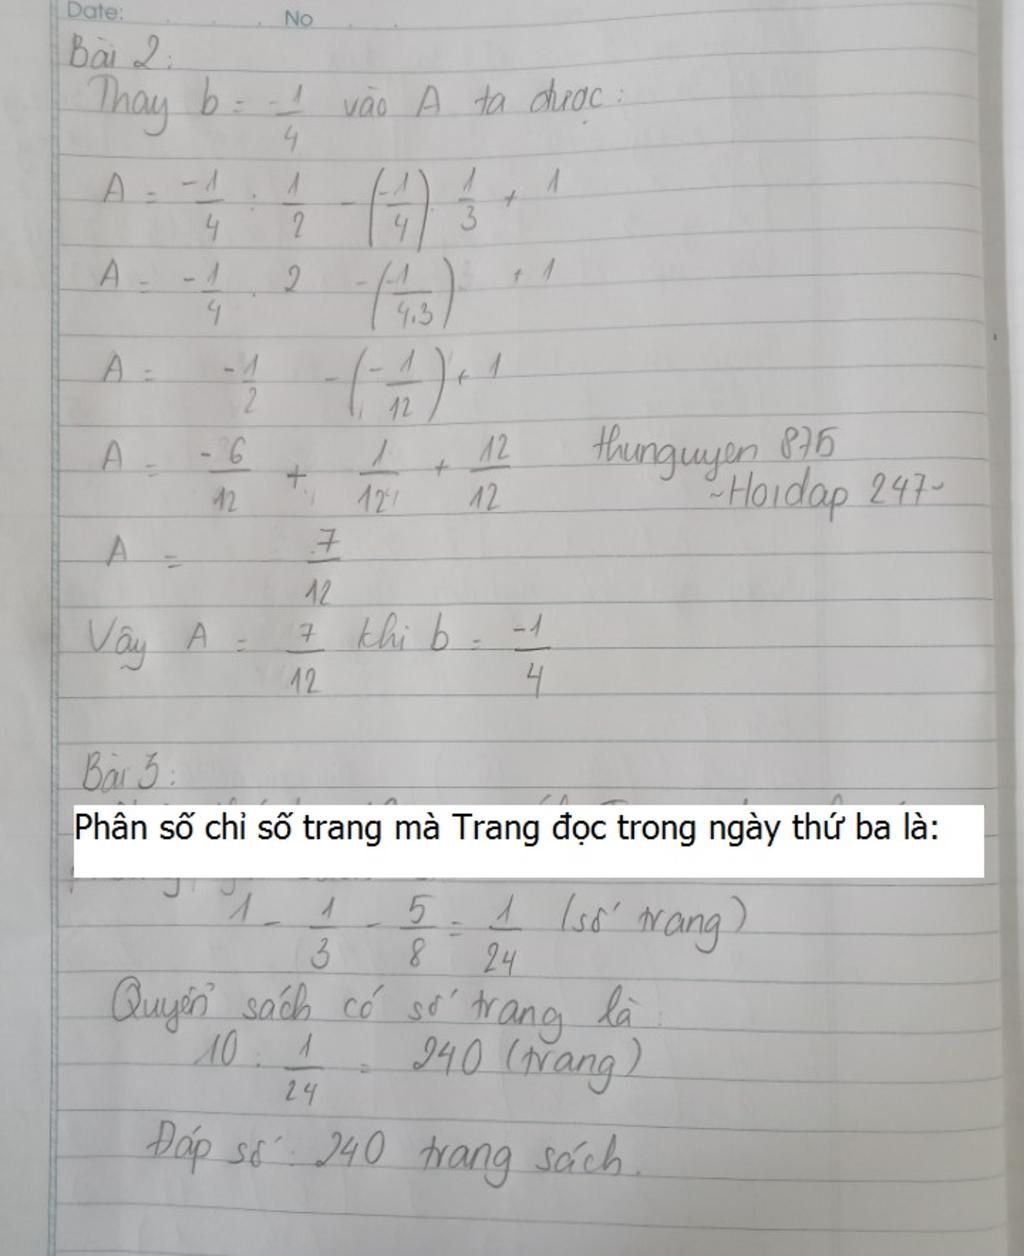 Date: No
Bài 2:
Thay b = -1/4 vào A ta được:
A = -1/4 : 1/2 - (-1/4) . 1/3 + 1
A = -1/4 . 2 - (-1/4.3) + 1
A = -1/2 - (-1/12) + 1
A = -6/12 + 1/12 + 12/12 thunguyen 875
~Hoidap 247~
A = 7/12
Vậy A = 7/12 khi b = -1/4
Bài 3:
Phân số chỉ số trang mà Trang đọc trong ngày thứ ba là:
1 - 1/3 - 5/8 = 1/24 (số trang)
Quyển sách có số trang là:
10 : 1/24 = 240 (trang)
Đáp số: 240 trang sách.